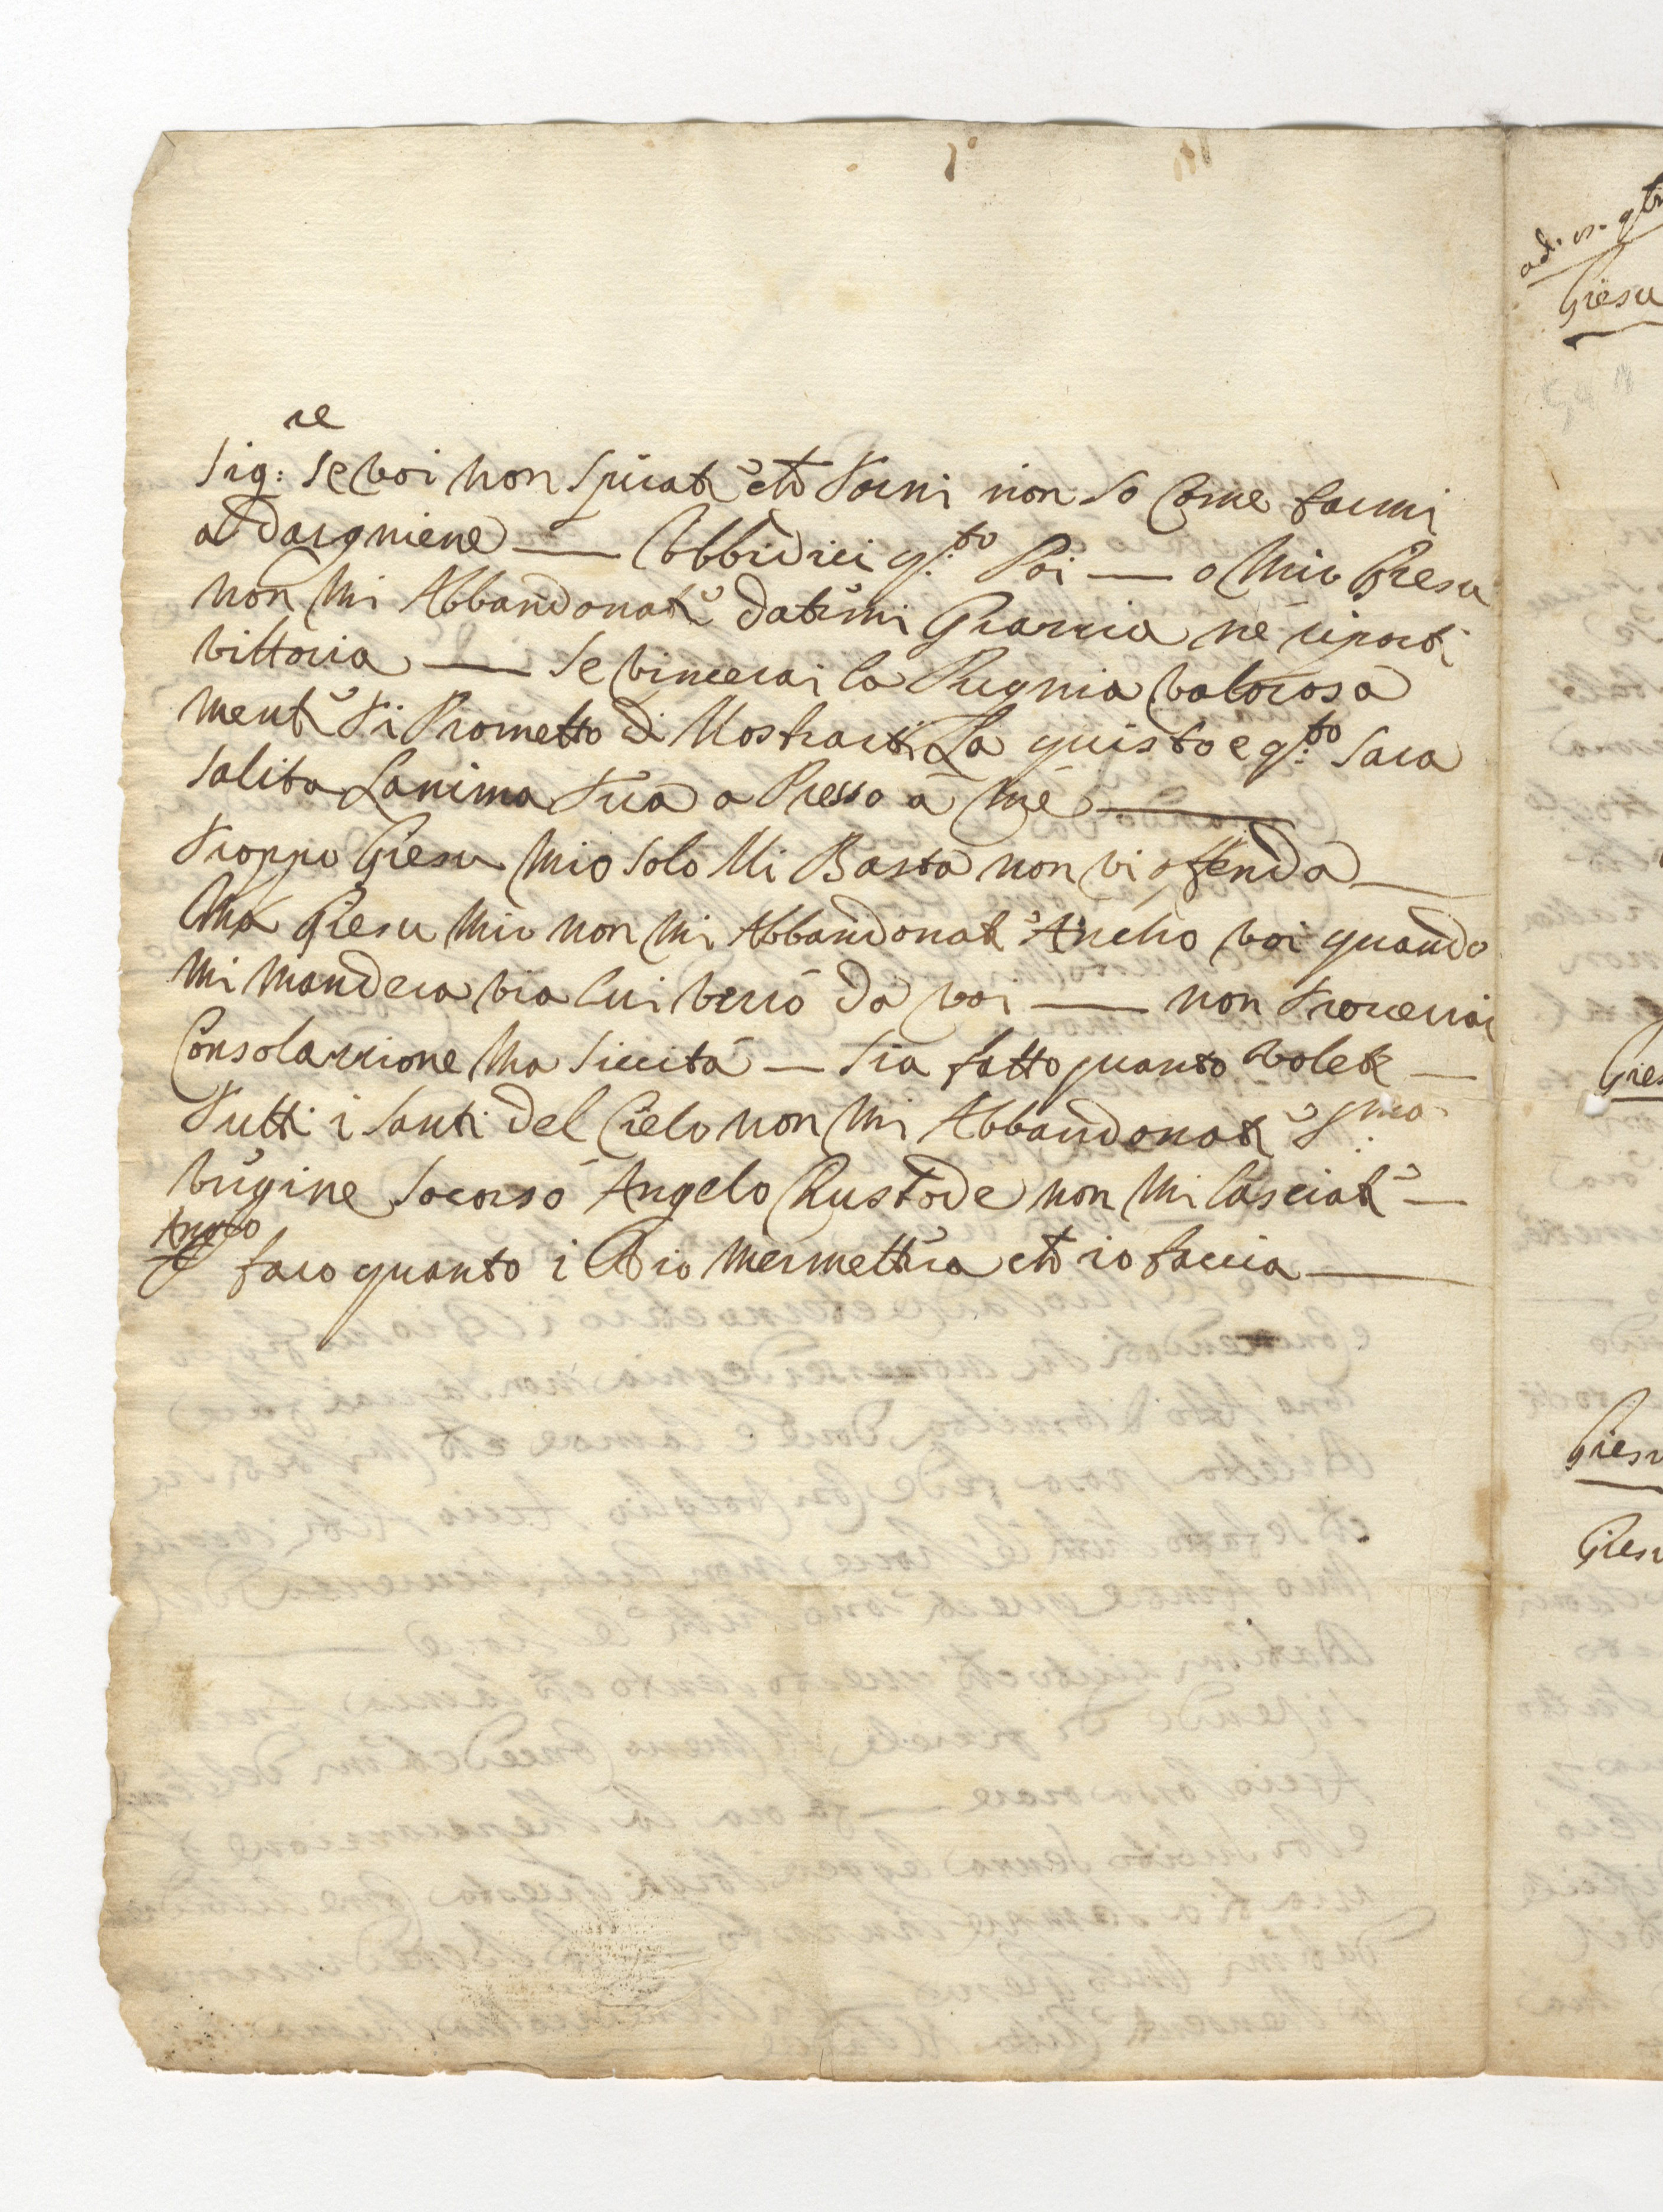 Sig:re se voi non Spirate che Torni non So Come farmi
a Dargniene — Obbidirei q.to Poi — o Mio Giesu
non Mi Abbandonate datemi Grazzia ne riporti
vittoria — Se vincerai la Pugnia valorosa
mente Ti Prometto di Mostrarti La quisto e q.to Sara
Salita Lanima Tua a Presso a me —
Troppo Giesu Mio Solo Mi Basta non vi offenda —
Ma Giesu Mio non Mi Abbandonate Ancho voi quando
Mi Mandera via lui verro da voi — non Troverai
Consolazzione Ma Siccita — Sia fatto quanto volete —
Tutti i Santi del Cielo non Mi Abbandonate S.ma
Virgine Socorso Angelo Custode non Mi lasciate —
Angelo
faro quanto i Dio Mermettera che io faccia —
Giesu
Giesu
Giesu